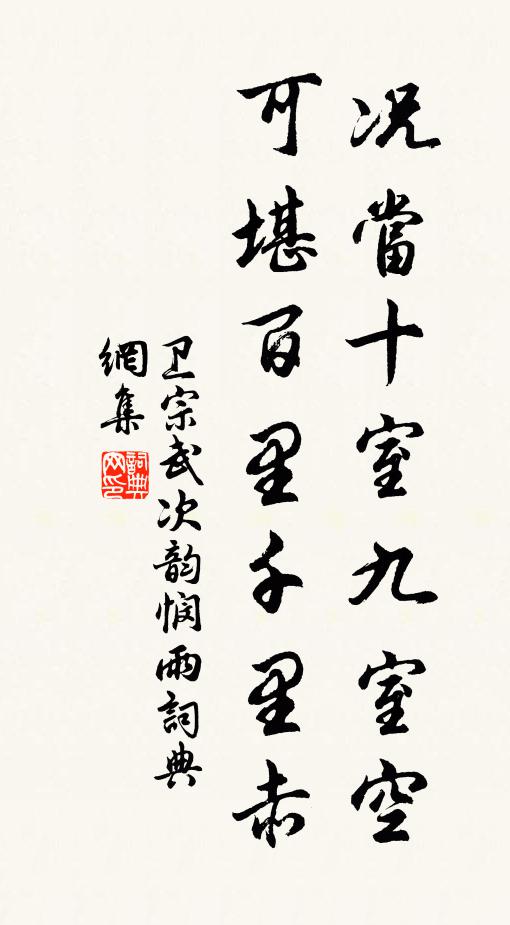 况當十室九室空
可堪百里千里赤
卫宗武次韵悯雨詞典
網集
詞典網印